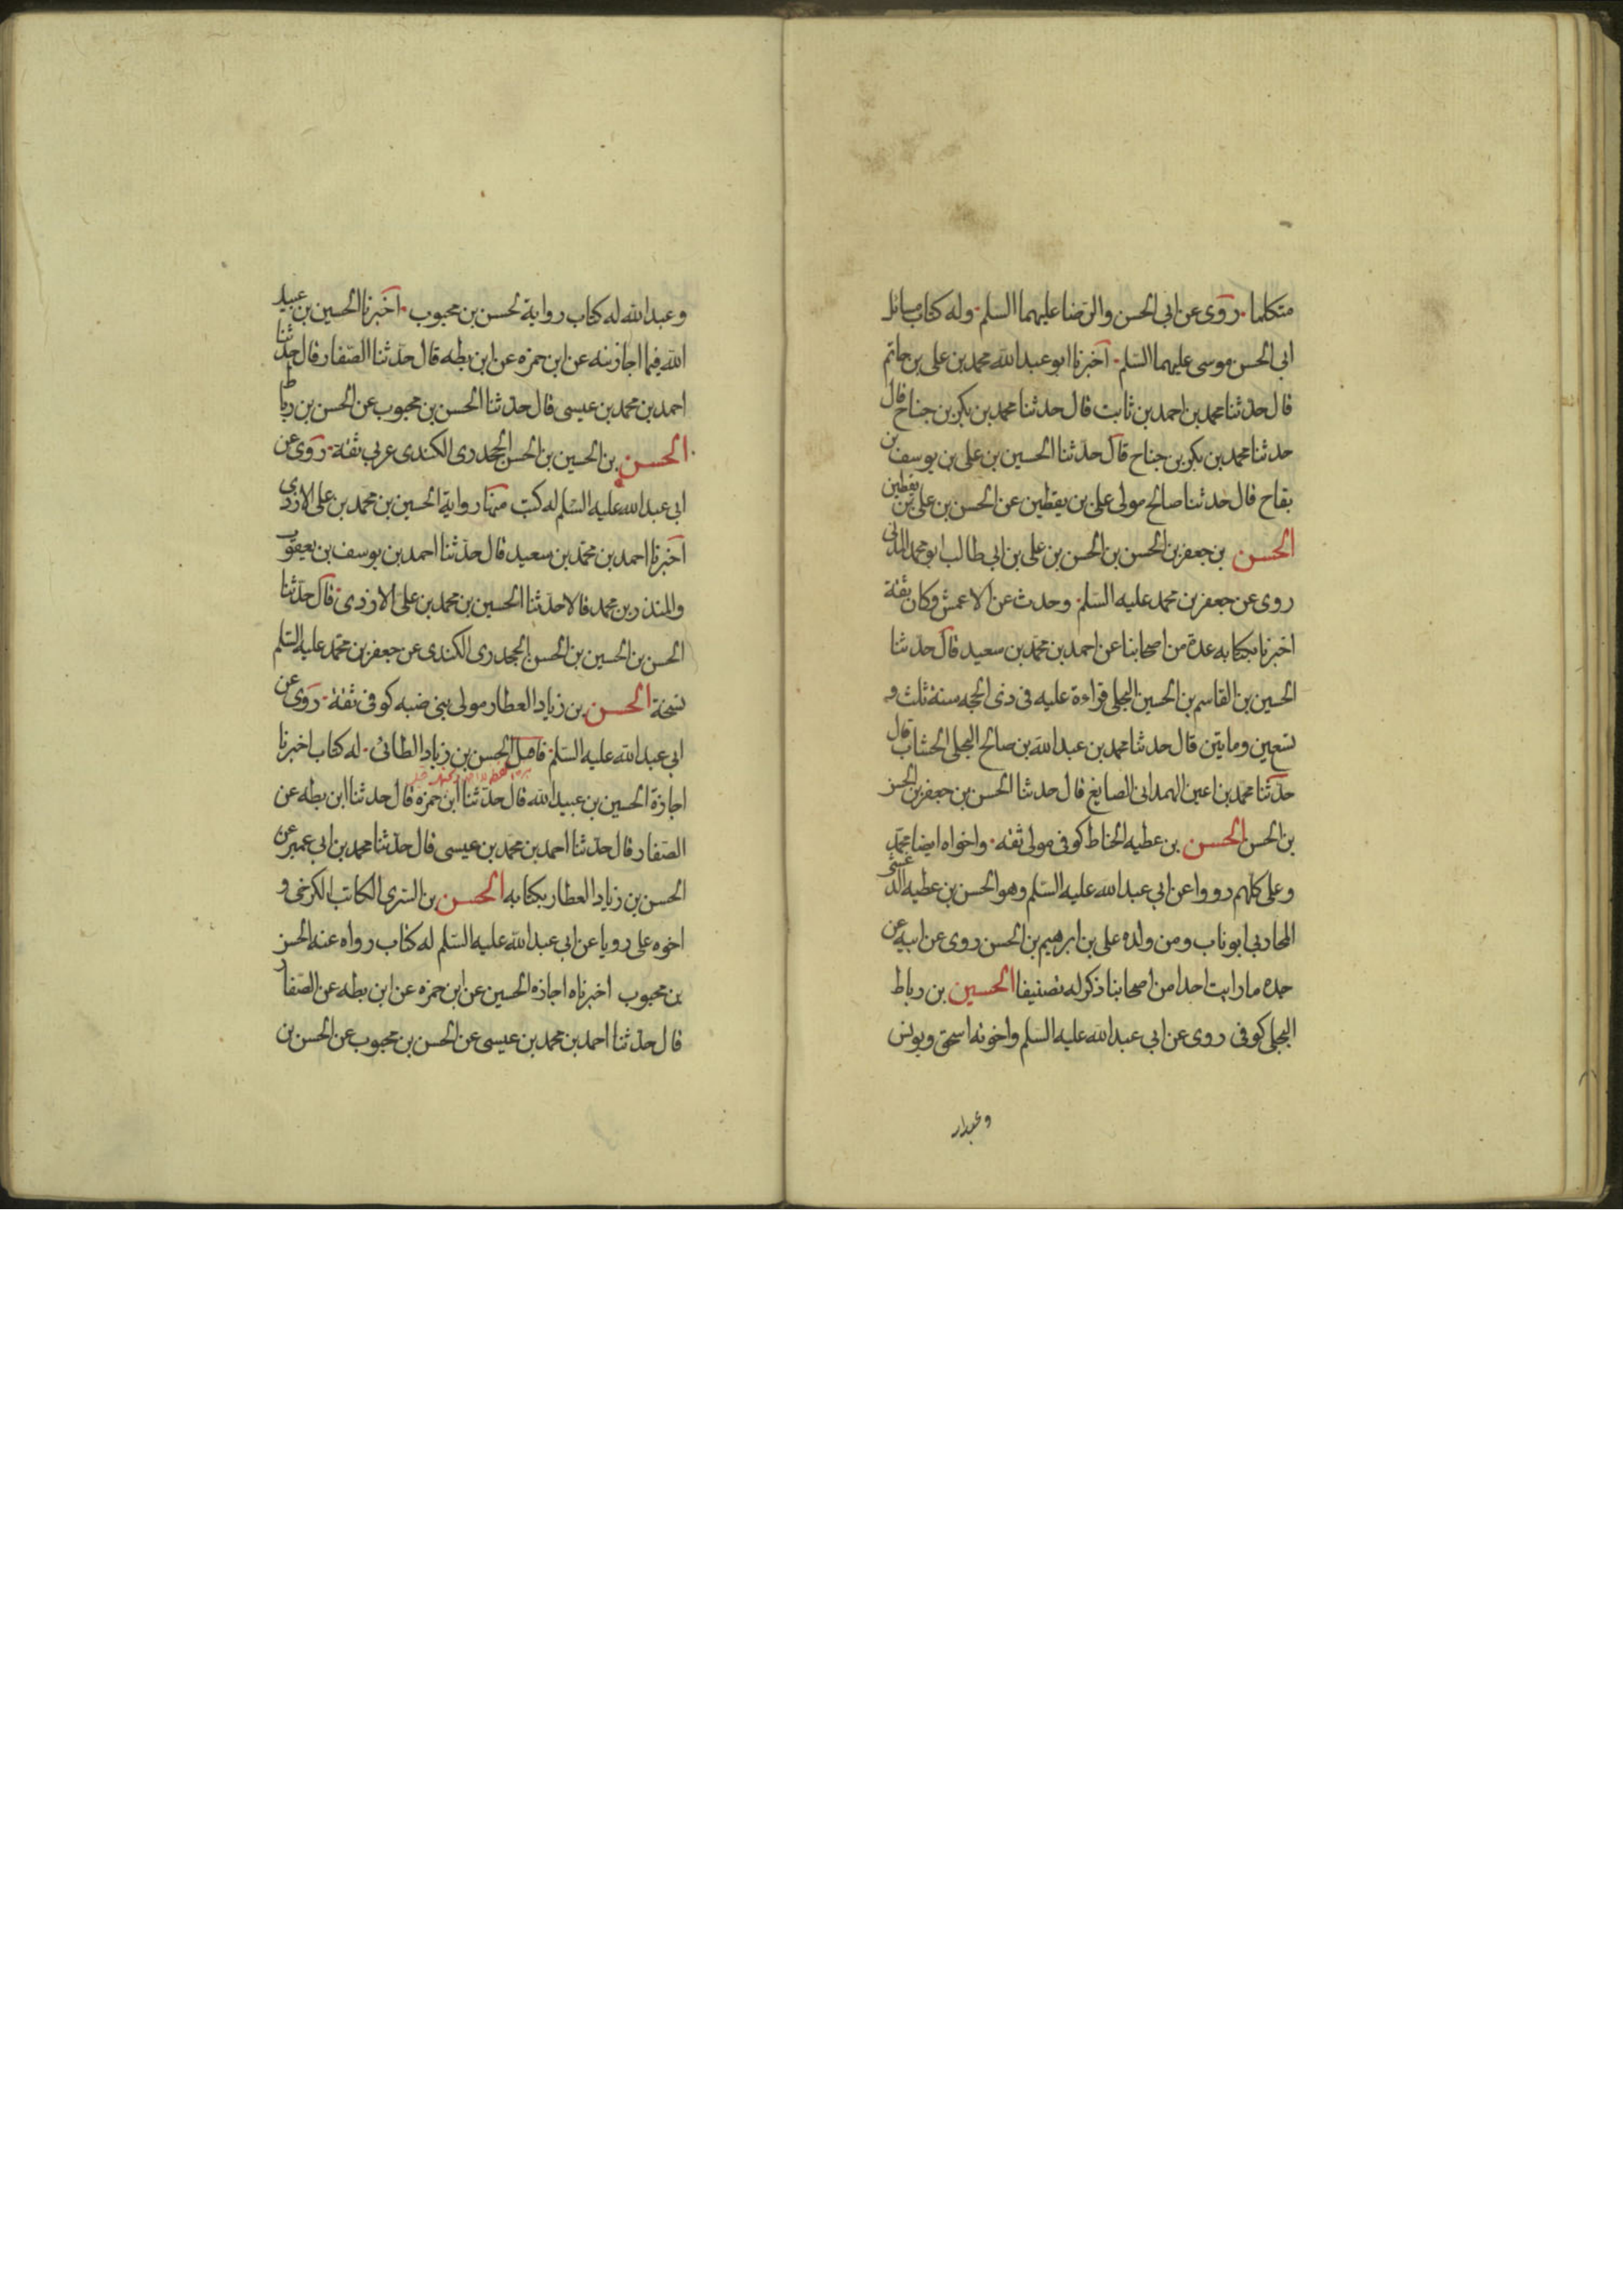 متكلما روى عن ابى الحسن والرضا عليهما السلم وله كتاب مسائل
ابى الحسن موسى عليهما السلم اخبرنا ابو عبد الله محمد بن على بن حاتم
قال حدثنا محمد بن احمد بن ثابت قال حدثنا محمد بن بكر بن جناح قال
حدثنا محمد بن بكر بن جناح قال حدثنا الحسين بن على بن يوسف بن
بقاح قال حدثنا صالح مولى على بن يقطين عن الحسن بن على بن يقطين
الحسن بن جعفر بن الحسن بن الحسن بن على بن ابى طالب ابو محمد المدنى
روى عن جعفر بن محمد عليه السلم وحدث عن الاعمش وكان ثقة
اخبرنا بكتابه عدة من اصحابنا عن احمد بن محمد بن سعيد قال حدثنا
الحسين بن القاسم بن الحسين البجلى قراءة عليه فى ذى الحجه سنة ثلث و
تسعين ومايتين قال حدثنا محمد بن عبد الله بن صالح البجلى الخشاب قال
حدثنا محمد بن اعين الهمدانى الصايغ قال حدثنا الحسن بن جعفر بن الحسن
بن الحسن الحسن بن عطيه الحناط كوفى مولى ثقه واخواه ايضا محمد
وعلى كلهم رووا عن ابى عبد الله عليه السلم وهو الحسن بن عطيه الدغشى
المحاربى ابو ناب ومن ولده على بن ابرهيم بن الحسن روى عن ابيه عن
جده ما رايت احدا من اصحابنا ذكر له تصنيفا الحسين بن رباط
البجلى كوفى روى عن ابى عبد الله عليه السلم واخوته اسحق ويونس
وعبدا
وعبد الله له كتاب رواية الحسن بن محبوب اخبرنا الحسين بن عبيد
الله فيما اجازنيه عن ابن حمزه عن ابن بطه قال حدثنا الصفار قال حدثنا
احمد بن محمد بن عيسى قال حدثنا الحسن بن محبوب عن الحسن بن رباط
الحسن بن الحسين بن الحسن الجحدرى الكندى عربى ثقة روى عن
ابى عبد الله عليه السلم له كتب منها رواية الحسين بن محمد بن على الازدى
اخبرنا احمد بن محمد بن سعيد قال حدثنا احمد بن يوسف بن يعقوب
والمنذر بن محمد قالا حدثنا الحسين بن محمد بن على الازدى قال حدثنا
الحسن بن الحسين بن الحسن الجحدرى الكندى عن جعفر بن محمد عليه السلم
نسخة الحسن بن زياد العطار مولى بنى ضبه كوفى ثقة روى عن
ابى عبد الله عليه السلم قاصل الحسن بن زياد الطائى له كتاب اخبرنا
اجازة الحسين بن عبيد الله قال حدثنا ابن حمزه قال حدثنا ابن بطه عن
الصفار قال حدثنا احمد بن محمد بن عيسى قال حدثنا محمد بن ابى عمير عن
الحسن بن زياد العطار بكتابه الحسن بن السرى الكاتب الكرخى و
اخوه على رويا عن ابى عبد الله عليه السلم له كتاب رواه عنه الحسن
بن محبوب اخبرناه اجازه الحسين عن ابن حمزه عن ابن بطه عن الصفار
قال حدثنا احمد بن محمد بن عيسى عن الحسن بن محبوب عن الحسن بن